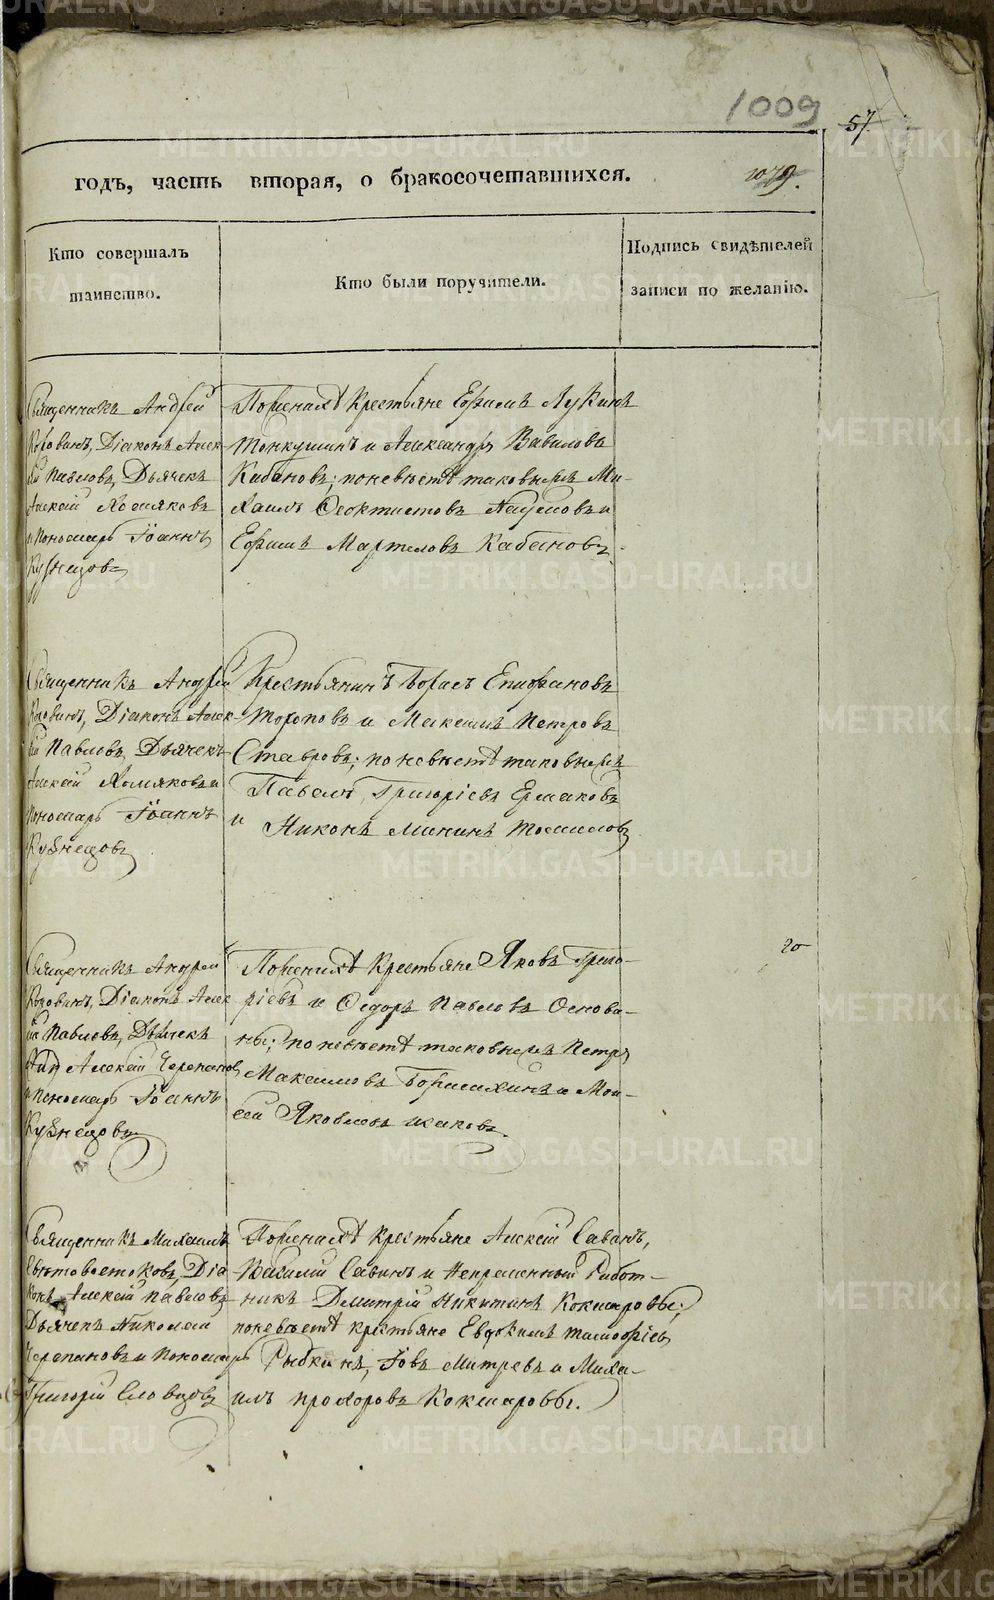 1009
57
годъ, часть вторая, о бракосочетавшихся.
1079.
Кто совершалъ
таинство.
Кто были поручители.
Подпись свидѣтелей
записи по желанію.
Священникъ Андрей
Коровинъ, Діаконъ Алек-
ѣй Павловъ, Дьячекъ
Алексѣй Хомяковъ
и Пономарь Іоаннъ
Кузнецовъ
По женихѣ крестьяне Ефимъ Лукинъ
и Александръ Вавиловъ
Кабановъ; по невѣстѣ таковыежъ Ми-
хаилъ Феоктистовъ Наумовъ и
Ефимъ Мартемовъ Кабановъ.
Священникъ Андрей
Коровинъ, Діаконъ Алек-
ѣй Павловъ, Дьячекъ
Алексѣй Хомяковъ и
Пономарь Іоаннъ
Кузнецовъ
Крестьянинъ Борисъ Епифановъ
Тороповъ и Максимъ Петровъ
Ставровъ; по невѣстѣ таковыежъ
Павелъ Григоріевъ Ермаковъ
и Никонъ Мининъ
Священникъ Андрей
Коровинъ, Діаконъ Алек
ѣй Павловъ, Дьячекъ
Алексѣй Черепановъ
и Пономарь Іоаннъ
Кузнецовъ
По женихѣ крестьяне Яковъ Григо-
ріевъ и Федоръ Павловъ Основи-
ны; по невѣстѣ таковыежъ Петръ
Максимовъ и Мои-
сей Яковлевъ Исаковъ.
20
Священникъ Михаилъ
Свѣтовостоковъ, Діа-
конъ Алексѣй Павловъ
Дьячекъ Николай
Черепановъ и Пономарь
Григорій Словцовъ
По женихѣ крестьяне Алексѣй Савинъ,
Василій Савинъ и Непременный Работ-
никъ Дмитрій Никитинъ Кокшаровы;
по невѣстѣ крестьяне Евдокимъ Тимофѣевъ
Рыбкинъ, Іовъ Митревъ и Миха-
илъ Прохоровъ Кокшаровы.
METRIKI.GASO-URAL.RU